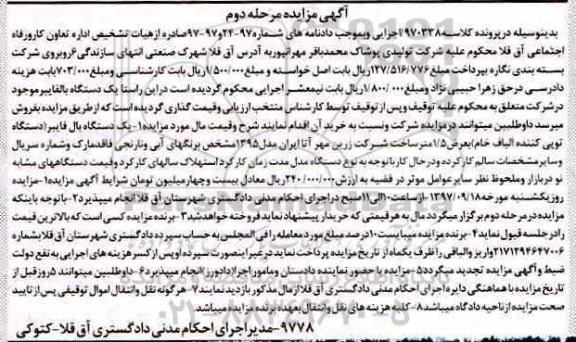 آگهی مزایده مرحله دوم
بدینوسیله درپرونده کلاسه ۹۷۰۳۳۸اجرایی وبموجب دادنامه های شماره۹۷-۲۴و۹۷-۹۷صادره ازهیات تشخیص اداره تعاون کارورفاه
اجتماعی آق قلا محکوم علیه شرکت تولیدی پوشاک محمدباقر مهرانپوربه آدرس آق قلا شهرک صنعتی انتهای سازندگی۶روبروی شرکت
بسته بندی نگاره بپرداخت مبلغ۱۲۷/۵۱۶/۷۷۶ریال بابت اصل خواسته و مبلغ۱/۵۰۰/۰۰۰ریال بابت کارشناسی ومبلغ۷۰۳/۰۰۰بابت هزینه
دادرسی درحق زهرا حبیبی نژاد ومبلغ۱/۸۰۰/۰۰۰ریال بابت نیمعشر اجرایی محکوم گردیده است دراین راستا یک دستگاه بالفایبرموجود
درشرکت متعلق به محکوم علیه توقیف وپس از توقیف توسط کارشناس منتخب ارزیابی وقیمت گذاری گردیده است که ازطریق مزایده بفروش
میرسد داوطلبین میتوانند درمزایده شرکت ونسبت به خرید آن اقدام نمایند شرح وقیمت مال مورد مزایده۱-یک دستگاه بال فایبر(دستگاه
توپی کننده الیاف خام)بعرض۱/۵مترساخت شیرکت زرین مهر آتا ایران مدل۱۳۹۵مشخص برنگهای آبی ونارنجی فاقدمارک وشماره سریال
وسایرمشخصات سالم کارکرده ودرحال کارباتوجه به نوع دستگاه مدل مدت زمان کارکرداستهلاک سالهای کارکردوقیمت دستگاههای مشابه
نو دربازار وملحوظ نظر سایرعوامل موثر در قضیه به ارزش۲۴۰/۰۰۰/۰۰۰ریال معادل بیست وچهارمیلیون تومان شرایط آگهی مزایده۱-مزایده
روزیکشنبه مورخه۱۳۹۷/۰۹/۱۸-ازساعت۱۰الی۱۱صبح دراجرای احکام مدنی دادگستری شهرستان آق قلاانجام میپذیرد۲-باتوجه باینکه
مزایده درمرحله دوم برگزار میگردد مال به هرقیمتی که خریدار پیشنهاد نماید فروخته خواهدشد۳-برنده مزایده کسی است که بالاترین قیمت
رادرجلسه قبول نماید۴-برنده مزایده میبایست۱۰درصد مبلغ مورد معامله را فی المجلس به حساب سپرده دادگستری شهرستان آق قلابشماره
۲۱۷۱۲۹۴۶۴۷۰۰۶واریز والباقی را ظرف یکماه از تاریخ مزایده پرداخت نماید درغیراینصورت سپرده اوپس ازکسرهزینه های اجرایی به نفع دولت
ضبط و آگهی مزایده تجدید میگردد۵-مزایده با حضور نماینده دادستان وماموراجرا(دادورز)انجام میپذیرد۶-داوطلبین میتوانند۵روزقبل از
تاریخ مزایده با هماهنگی دایره اجرای احکام مدنی دادگستری آق قلا ازمال مذکور بازدید نمایند۷-هرگونه نقل وانتقال اموال توقیفی پس از تایید
صحت مزایده از ناحیه دادگاه میباشد۸-کلیه هزینه های نقل وانتقال بعهده برنده مزایده میباشد
۹۷۷۸-مدیراجرای احکام مدنی دادگستری آق قلا-کتوکی